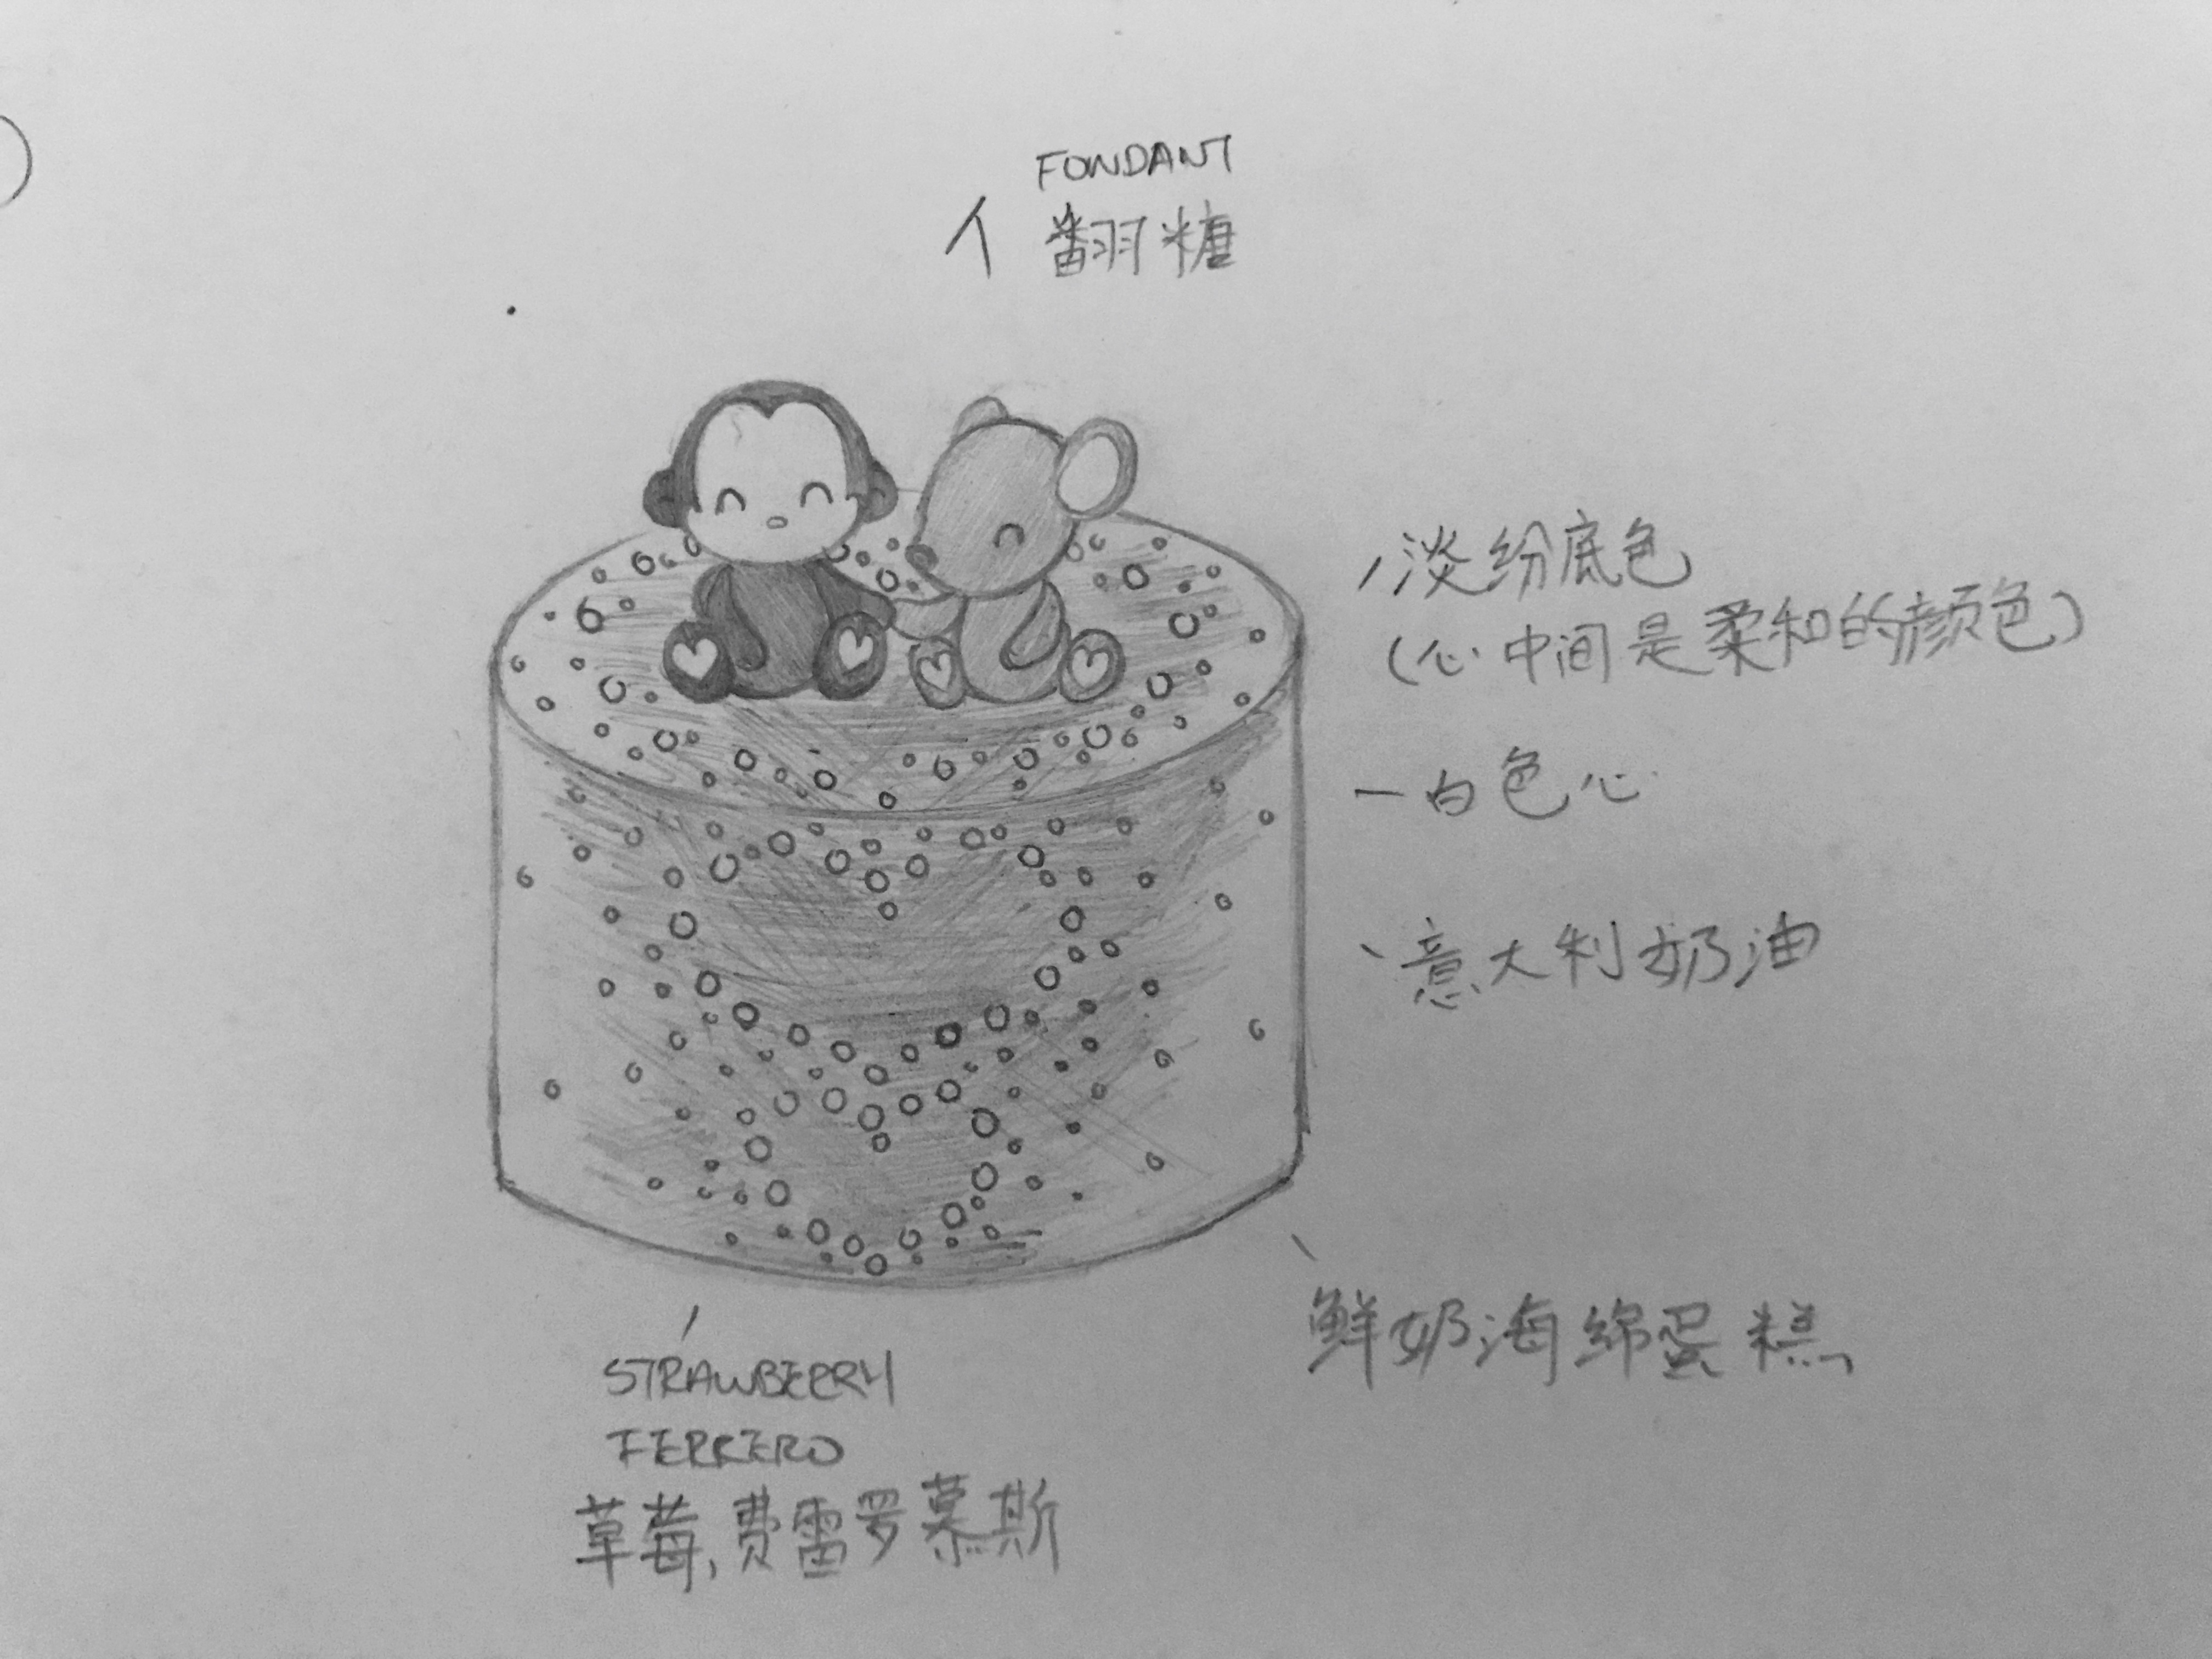 FONDANT
翻糖
淡纷底色
(心中间是柔和的颜色)
白色心
意大利奶油
鲜奶海绵蛋糕
STRAWBEERY
FERRERO
草莓,费雷罗慕斯